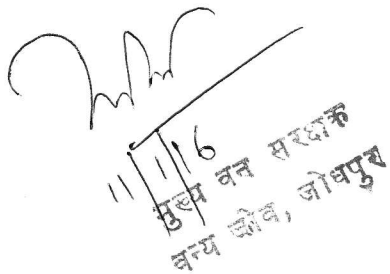 11/1/16
मुख्य वन संरक्षक
वन्य जीव, जोधपुर